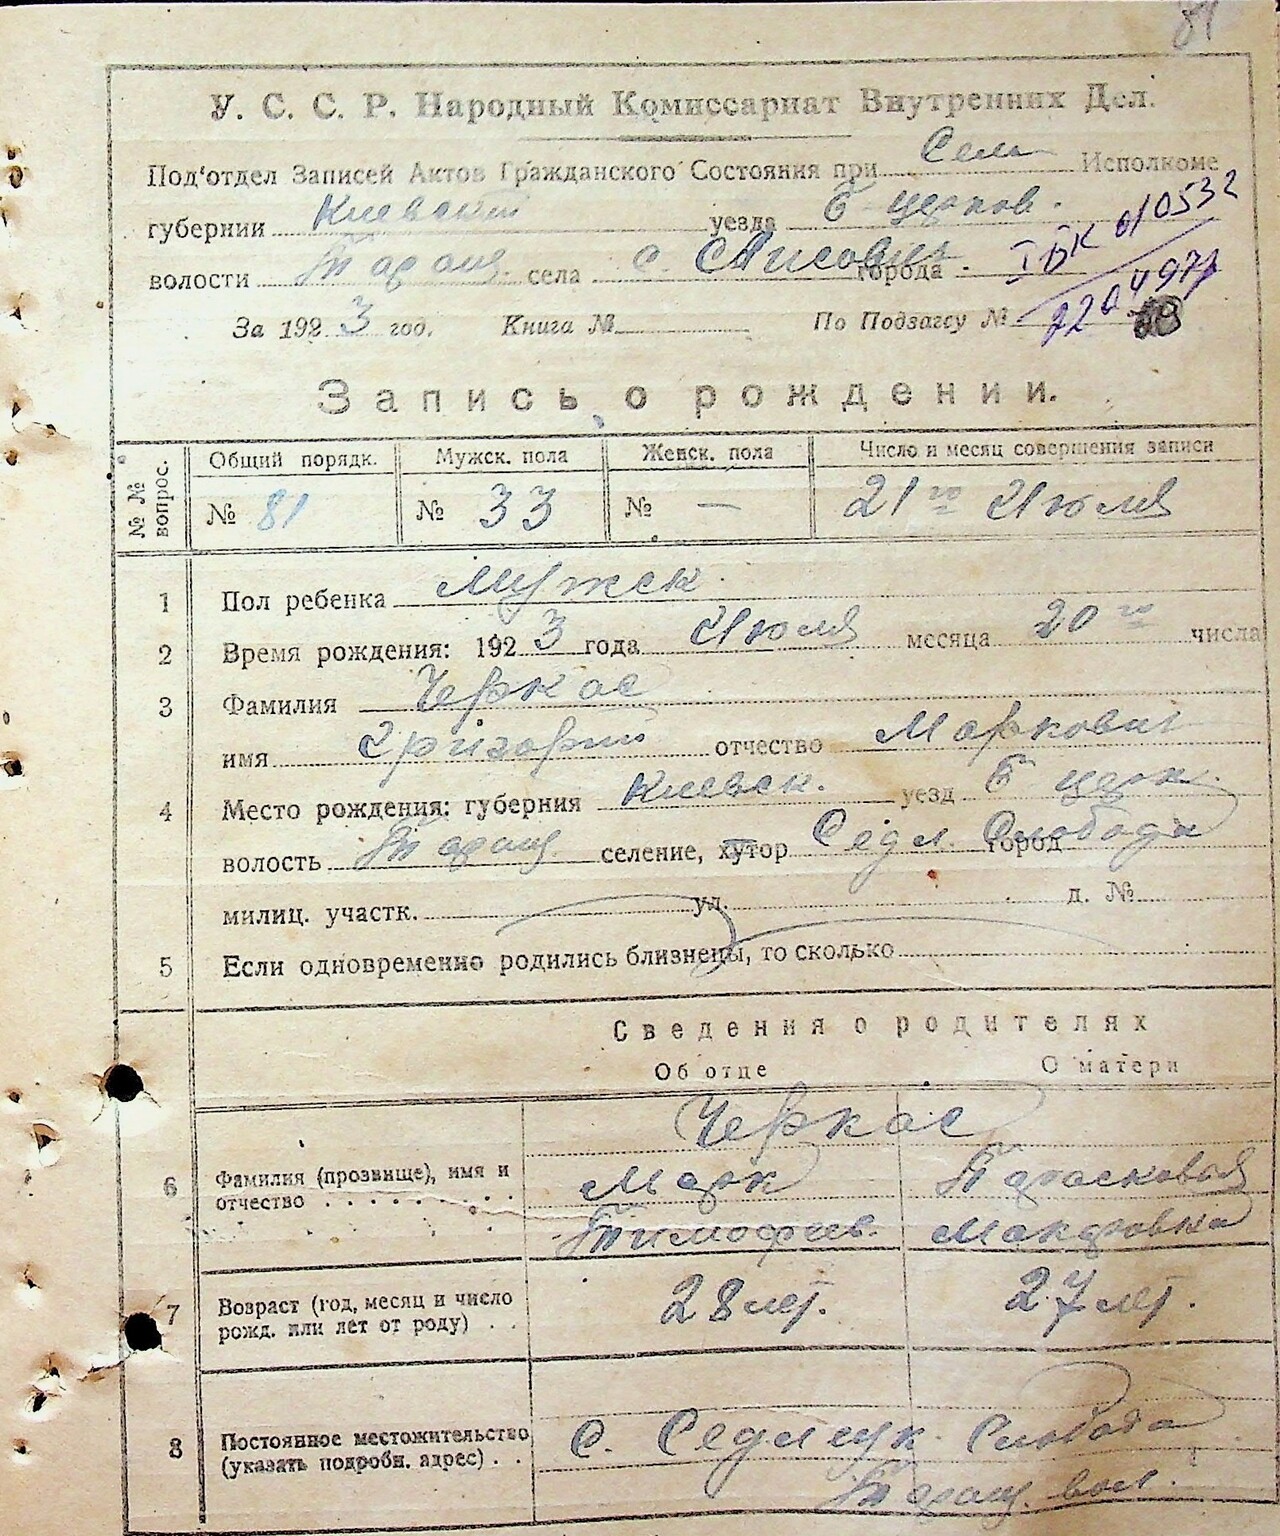 81
У. С. С. Р. Народный Комиссариат Внутренних Дел.
Под'отдел Записей Актов Гражданского Состояния при Сель Исполкоме
губернии Киевской уезда Б церков.
волости Таращ. села с. Лисович города
ІБК 010532
За 1923 год. Книга № По Подзагсу №
2204971
Запись о рождении.
№ № вопрос. Общий порядк. Мужск. пола Женск. пола Число и месяц совершения записи
№ 81 № 33 № — 21го Июля
1 Пол ребенка Мужск.
2 Время рождения: 1923 года Июля месяца 20го числа
3 Фамилия Черкас
имя Григорий отчество Маркович
4 Место рождения: губерния Киевск. уезд Б церк.
волость Таращ. селение, хутор Седл. Слобода город
милиц. участк. ул. д. №
5 Если одновременно родились близнецы, то сколько
Сведения о родителях
Об отце О матери
Черкас
6 Фамилия (прозвище), имя и Марк Парасковья
отчество Тимофеев. Макаровна
7 Возраст (год, месяц и число 28 лет. 27 лет.
рожд. или лет от роду)
8 Постоянное местожительство с. Седлецк. Слобода
(указать подробн. адрес) Таращ. вол.